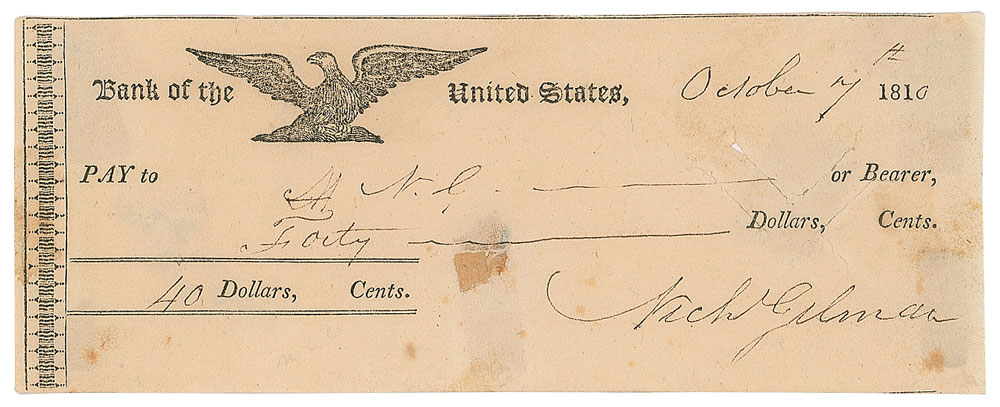 Bank of the United States, October 7th 1810
PAY to N. G. or Bearer,
Forty Dollars, Cents.
40 Dollars, Cents.
Nich Gilman